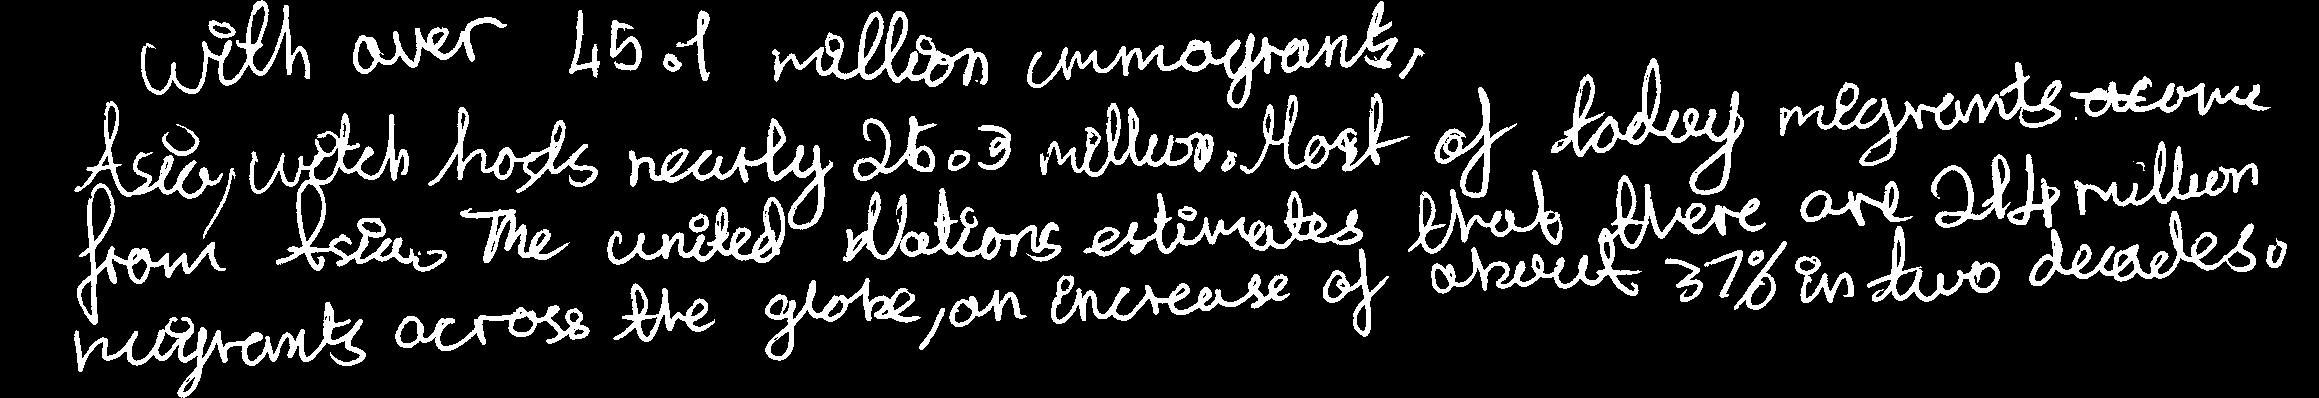 with over 45.1 million immagrants,
Asia, witch hosts nearly 25.3 million. Most of today migrants come
from Asia. The united Nations estimates that there are 214 million
migrants across the globe, an increase of about 37% in two decades.